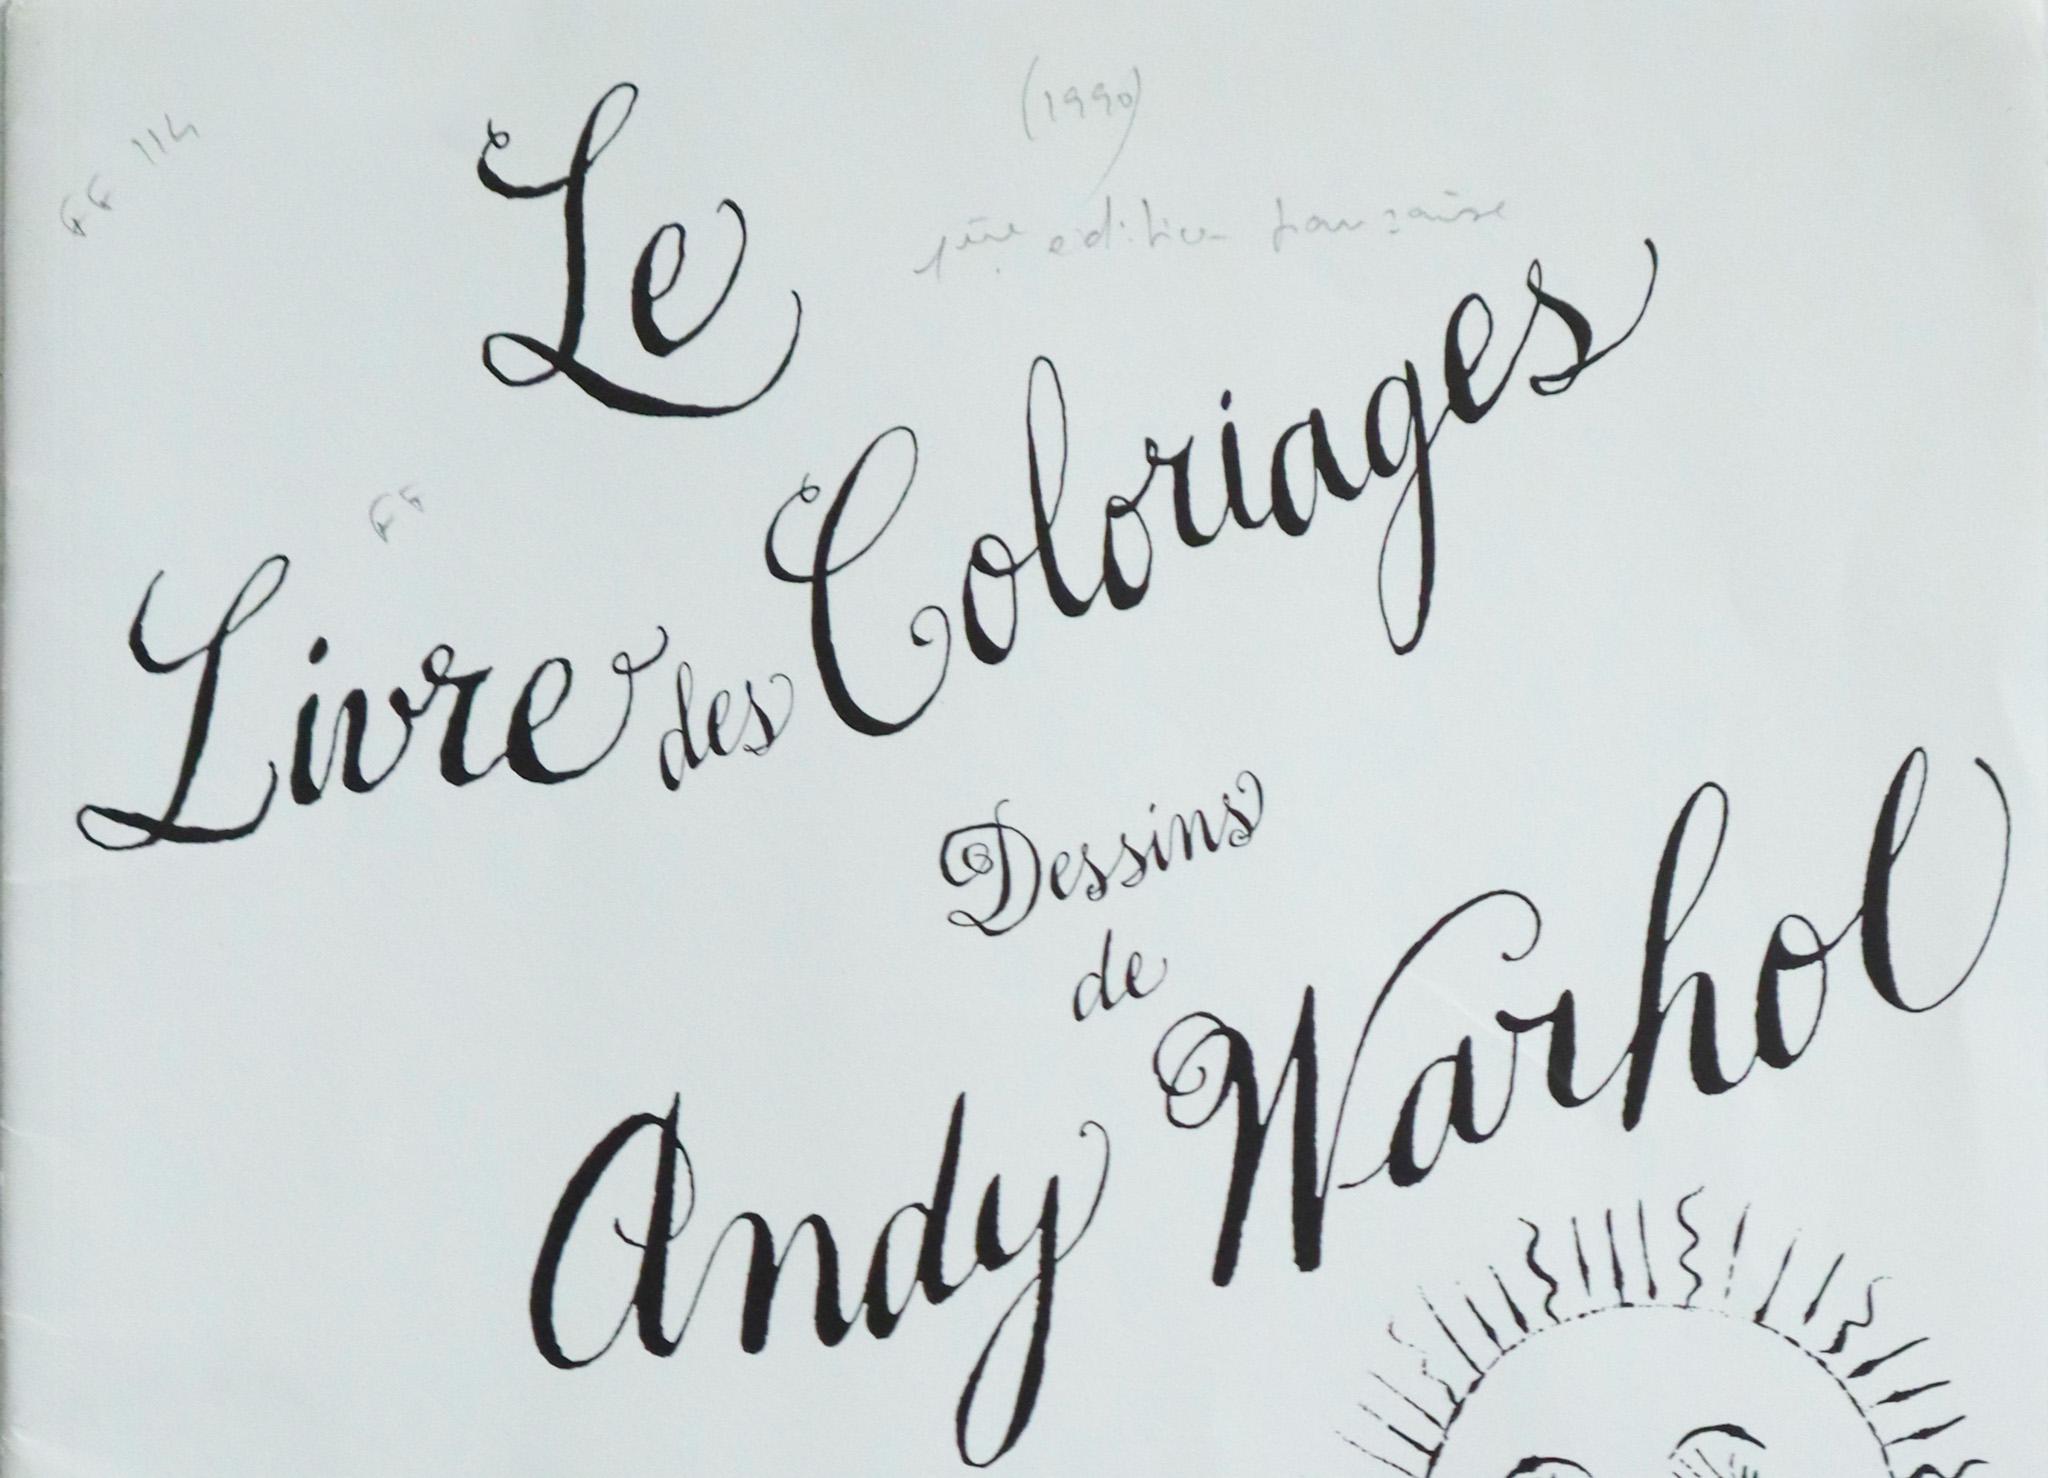 (1990)
1ère edition française
114
Le
Livre des Coloriages
Dessins
de
Andy Warhol